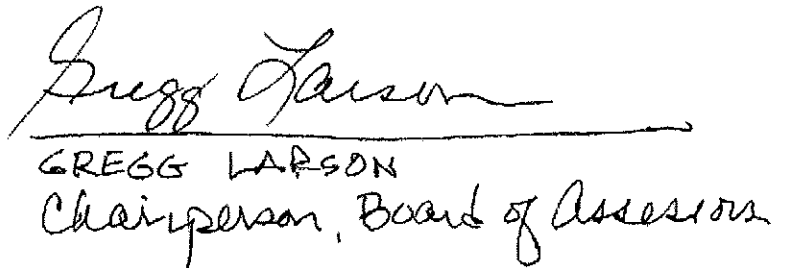 Gregg Larson
GREGG LARSON
Chairperson, Board of Assessors